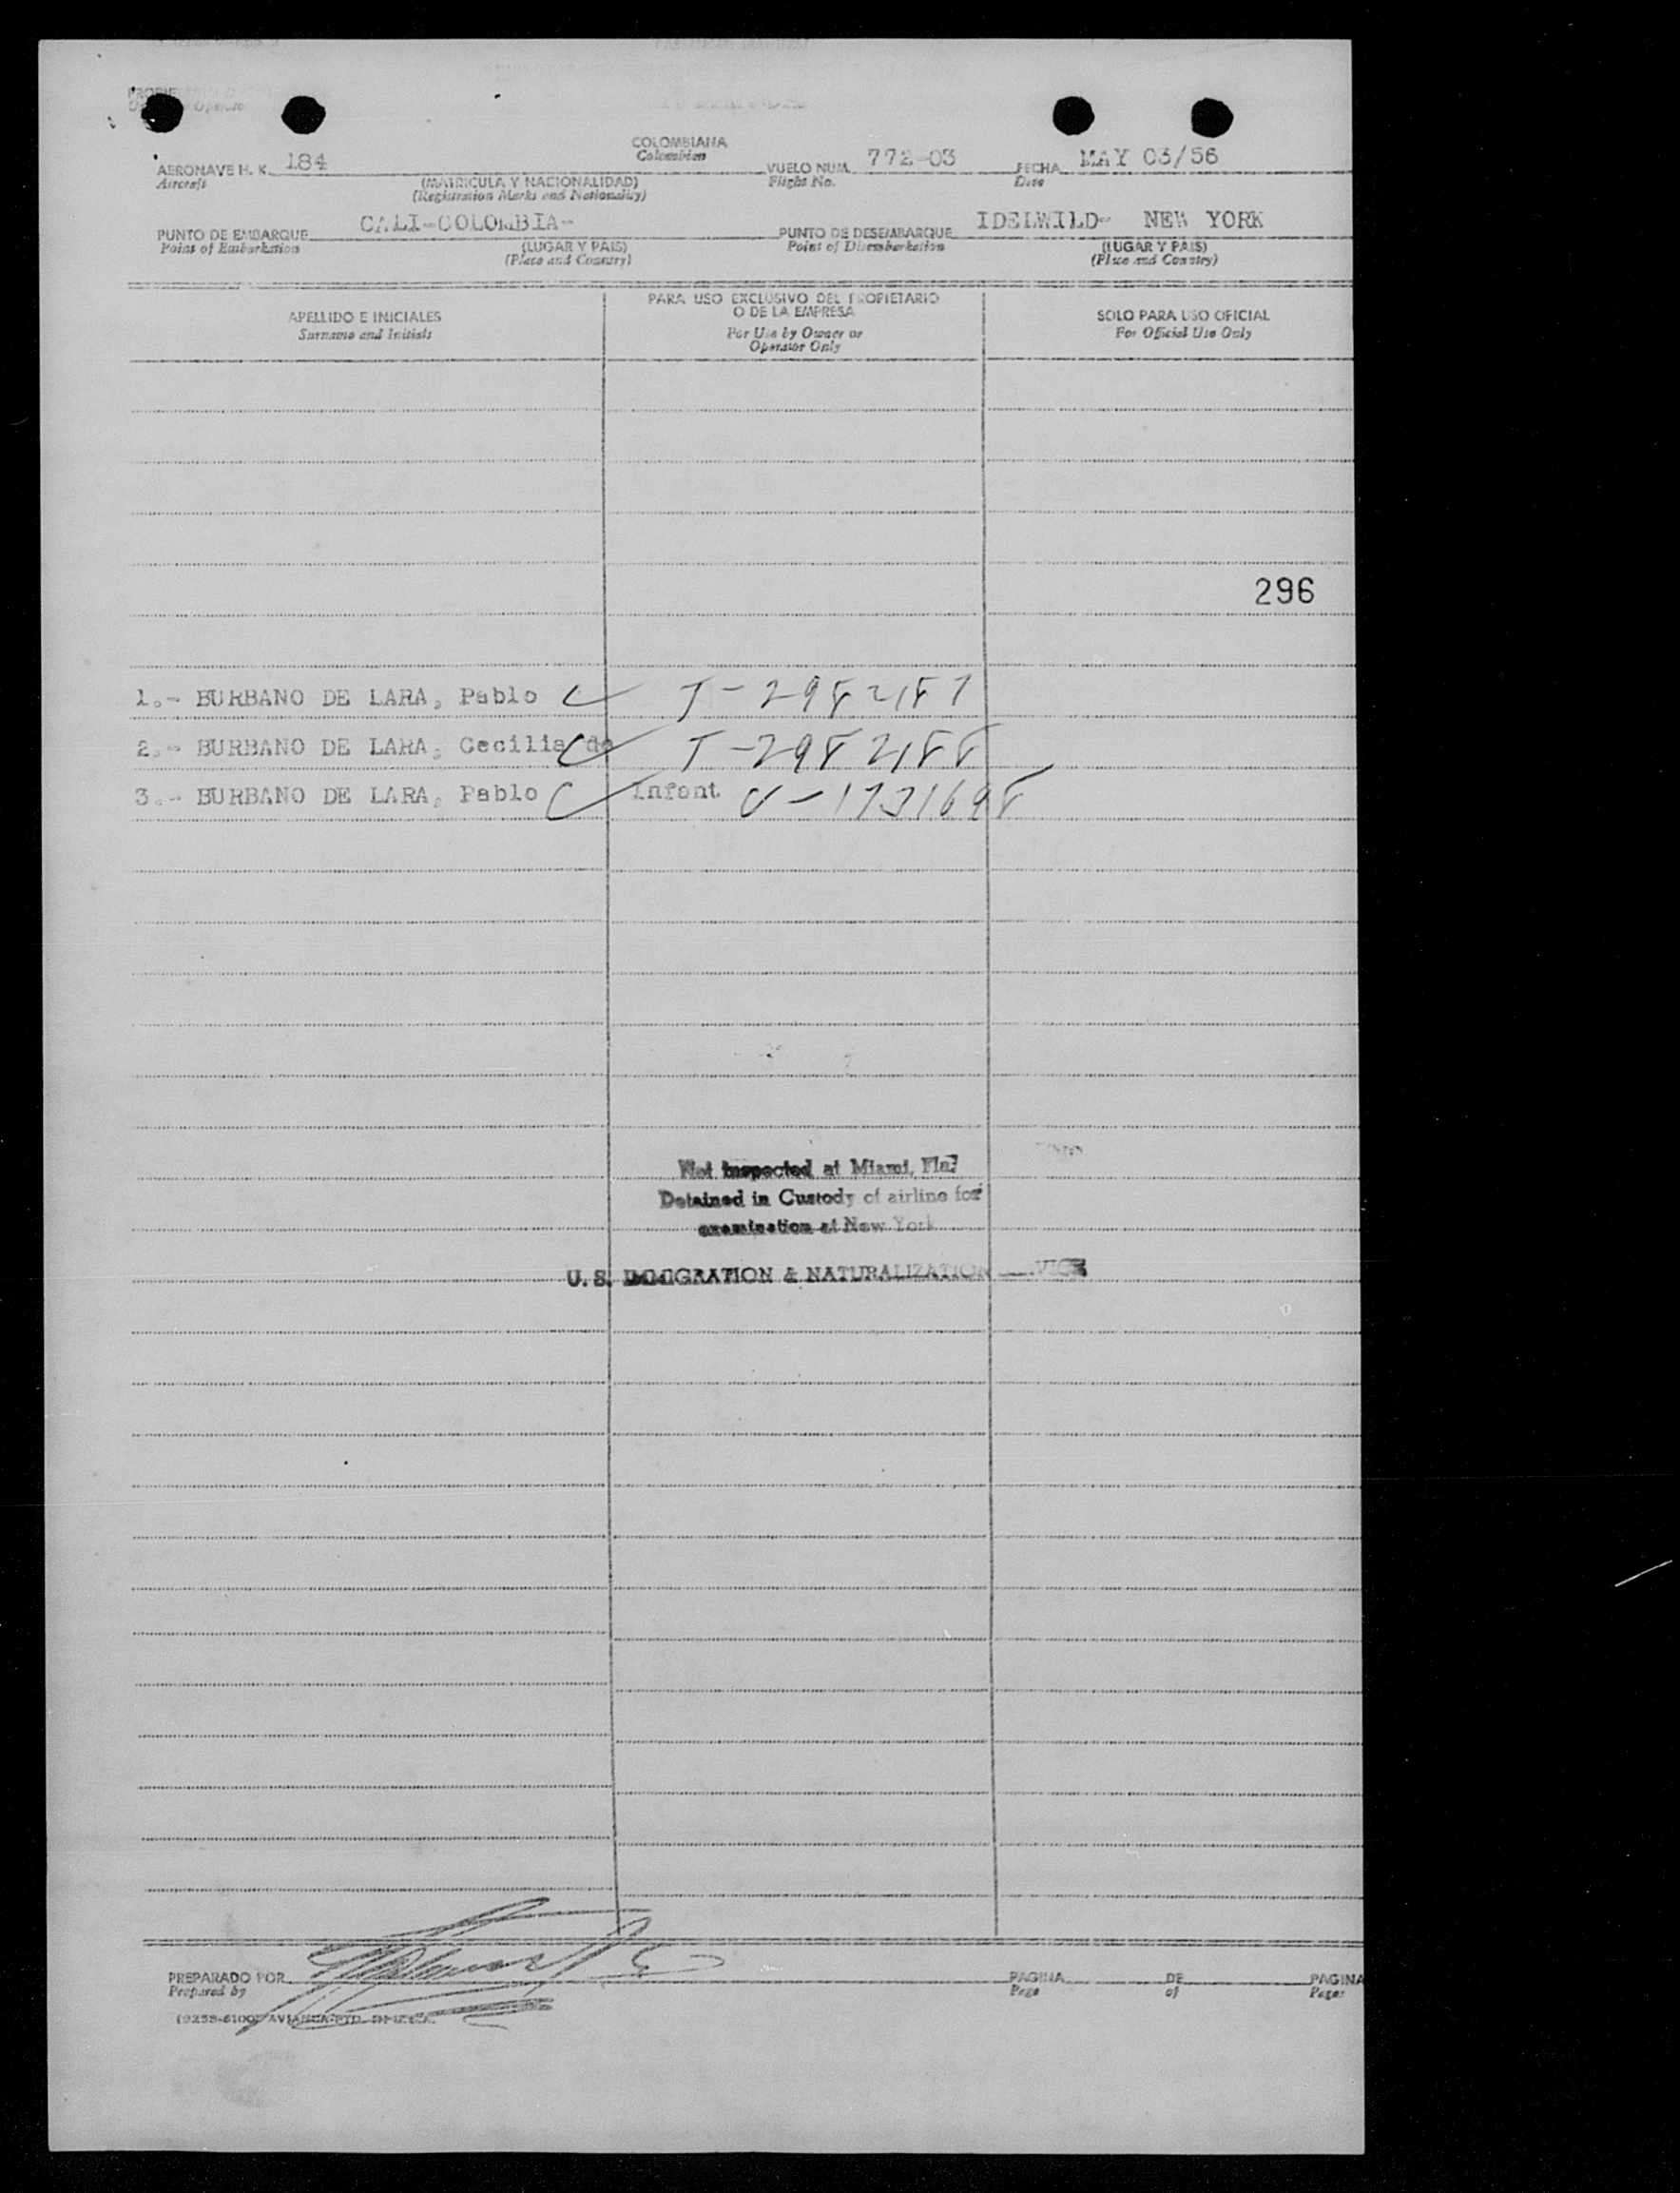 COLOMBIANA
Colombian
AERONAVE H. K. 184
Aircraft
(MATRICULA Y NACIONALIDAD)
(Registration Marks and Nationality)
VUELO NUM. 772-03
Flight No.
FECHA MAY 03/56
Date
PUNTO DE EMBARQUE CALI-COLOMBIA-
Point of Embarkation
(LUGAR Y PAIS)
(Place and Country)
PUNTO DE DESEMBARQUE IDELWILD- NEW YORK
Point of Disembarkation
(LUGAR Y PAIS)
(Place and Country)
APELLIDO E INICIALES
Surname and Initials
PARA USO EXCLUSIVO DEL PROPIETARIO
O DE LA EMPRESA
For Use by Owner or
Operator Only
SOLO PARA USO OFICIAL
For Official Use Only
296
1.- BURBANO DE LARA, Pablo T-2982187
2.- BURBANO DE LARA, Cecilia de T-2982188
3.- BURBANO DE LARA, Pablo Infant V-1731698
Not Inspected at Miami, Fla.
Detained in Custody of airline for
examination at New York
U. S. IMMIGRATION & NATURALIZATION SERVICE
PREPARADO POR
Prepared by
PAGINA DE PAGINA
Page of Pages